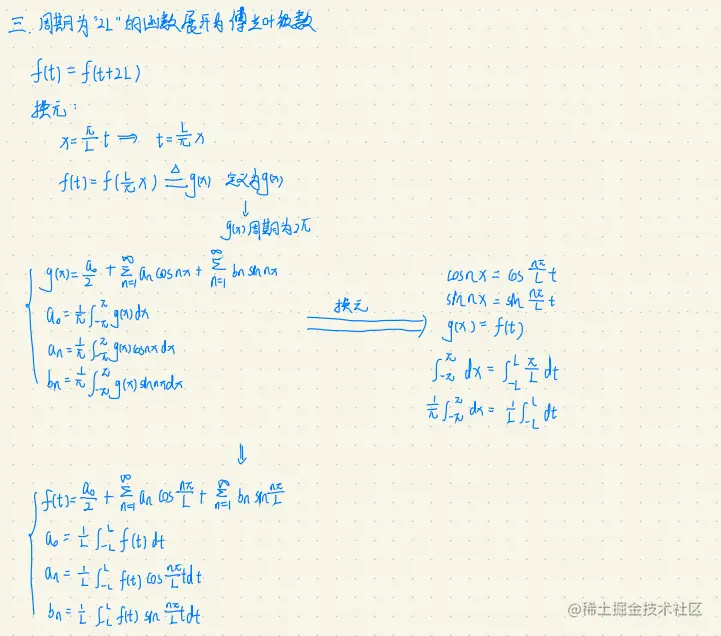 三. 周期为"2L"的函数展开为傅立叶级数
f(t) = f(t+2L)
换元:
x = π/L t ⟹ t = L/π x
f(t) = f(L/π x) ≜ g(x) 定义为g(x)
↓
g(x)周期为2π
g(x) = a₀/2 + ∑_{n=1}^{∞} aₙ cos nx + ∑_{n=1}^{∞} bₙ sin nx
a₀ = 1/π ∫_{-π}^{π} g(x) dx
aₙ = 1/π ∫_{-π}^{π} g(x) cos nx dx
bₙ = 1/π ∫_{-π}^{π} g(x) sin nx dx
换元
cos nx = cos nπ/L t
sin nx = sin nπ/L t
g(x) = f(t)
∫_{-π}^{π} dx = ∫_{-L}^{L} π/L dt
1/π ∫_{-π}^{π} dx = 1/L ∫_{-L}^{L} dt
⇓
f(t) = a₀/2 + ∑_{n=1}^{∞} aₙ cos nπ/L + ∑_{n=1}^{∞} bₙ sin nπ/L
a₀ = 1/L ∫_{-L}^{L} f(t) dt
aₙ = 1/L ∫_{-L}^{L} f(t) cos nπ/L t dt
bₙ = 1/L ∫_{-L}^{L} f(t) sin nπ/L t dt
@稀土掘金技术社区